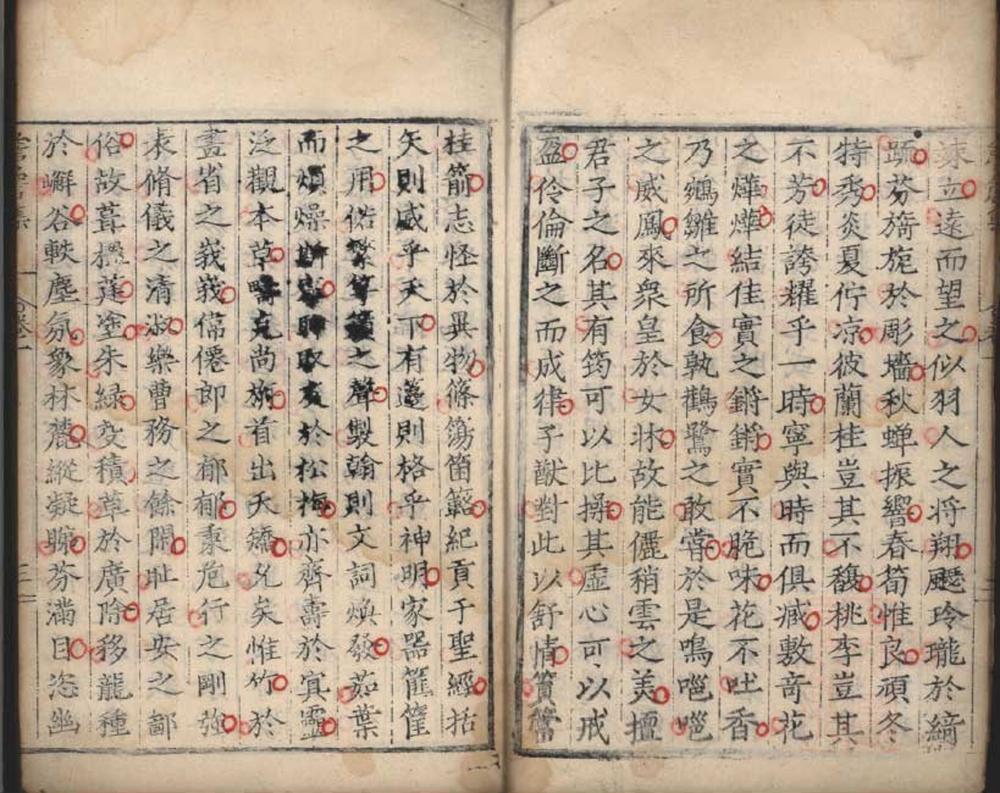 竦立遠而望之似羽人之将翔飋玲瓏於綺
䟽芬旖旎於彫墻秋蟬振響春筍惟良頑冬
特秀炎夏佇凉彼蘭桂豈其不馥桃李豈其
不芳徒誇耀乎一時寧與時而俱臧敷竒花
之燁燁結佳實之鏘鏘實不脆味花不吐香
乃鵷雛之所食孰鸖鷺之敢嘗於是鳴嗈嗈
之威鳳來衆皇於女牀故能儷稍雲之美擅
君子之名其有筠可以比操其虛心可以戒
盈伶倫斷之而成律子猷對此以舒情簣
桂箭志怪於異物篠簜箘簵紀貢于聖經括
矢則威乎天下有籩則格乎神明家器筐
之用俗之聲製翰則文詞煥發茹葉
而煩燥於松梅亦齊壽於冥靈
泛觀本草尚首出夭矯允矣惟竹於
畫省之峩峩儒僊郎之郁郁秉危行之剛強
表脩儀之清淑樂曹務之餘閑耻居安之鄙
俗故葺櫺蓬塗朱緑交積草於廣除移龍種
於嶰谷軼塵氛象林麓縱凝睇芬滿目恣幽